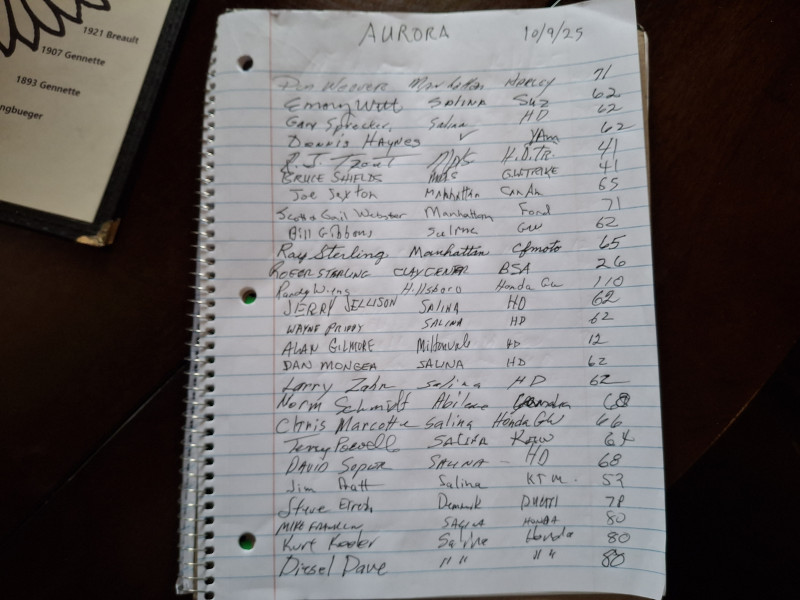 1921 Breault
1907 Gennette
1893 Gennette
ngbueger
AURORA 10/9/25
Weaver Manhattan HARLEY 71
Emory Wutt SALINA SUZ 62
Gary Sprecker Salina HD 62
Dennis HAYNES ✓ YAM 62
R.J. Trout MHS H.D.TR. 41
BRUCE SHIELDS MHS GW TRIKE 41
Joe Sexton MANHATTAN CAN AM 65
Scott & Gail Webster Manhattan Ford 71
Bill Gibbons Salina GW 62
Ray Sterling Manhattan Cfmoto 65
ROGER STARLING CLAY CENTER BSA 26
Randy Hillsboro Honda GW 110
JERRY JELLISON SALINA HD 62
WAYNE PRIDDY SALINA HD 62
ALAN GILMORE Miltonvale HD 12
DAN MONGEA SALINA HD 62
Larry Zahn Salina HD 62
Norm Schmidt Abilene 68
Chris Marcotte Salina Honda GW 66
Terry Powell SALINA Kaw 64
DAVID SALINA - HD 68
Jim Pratt Salina KTM. 53
Steve DUCATI 78
MIKE FRANKLIN SALINA HONDA 80
Kurt Keeler Salina Honda 80
Diesel Dave " " " " 80